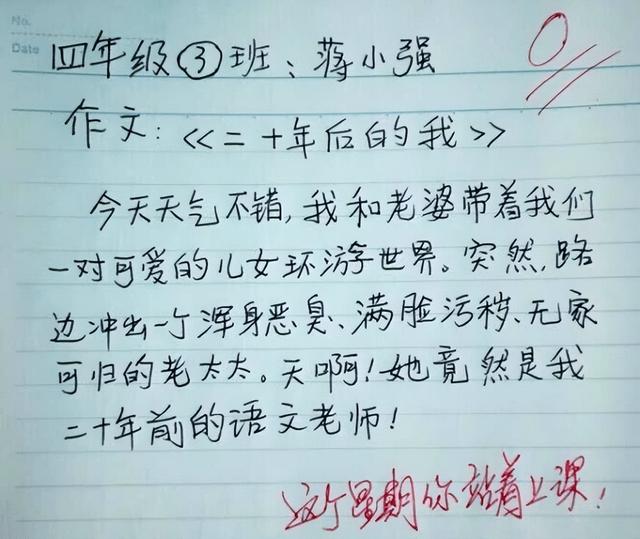 No.
Date
0
四年级③班：蒋小强
作文：《二十年后的我》
今天天气不错，我和老婆带着我们
一对可爱的儿女环游世界。突然，路
边冲出一个浑身恶臭、满脸污秽、无家
可归的老太太。天啊！她竟然是我
二十年前的语文老师！
这个星期你站着上课！